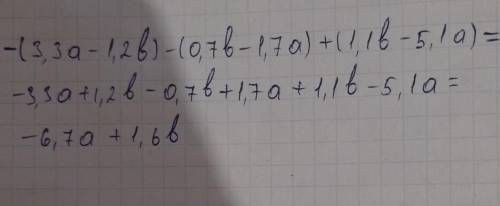 -(3,3a-1,2b)-(0,7b-1,7a)+(1,1b-5,1a)=
-3,3a+1,2b-0,7b+1,7a+1,1b-5,1a=
-6,7a+1,6b